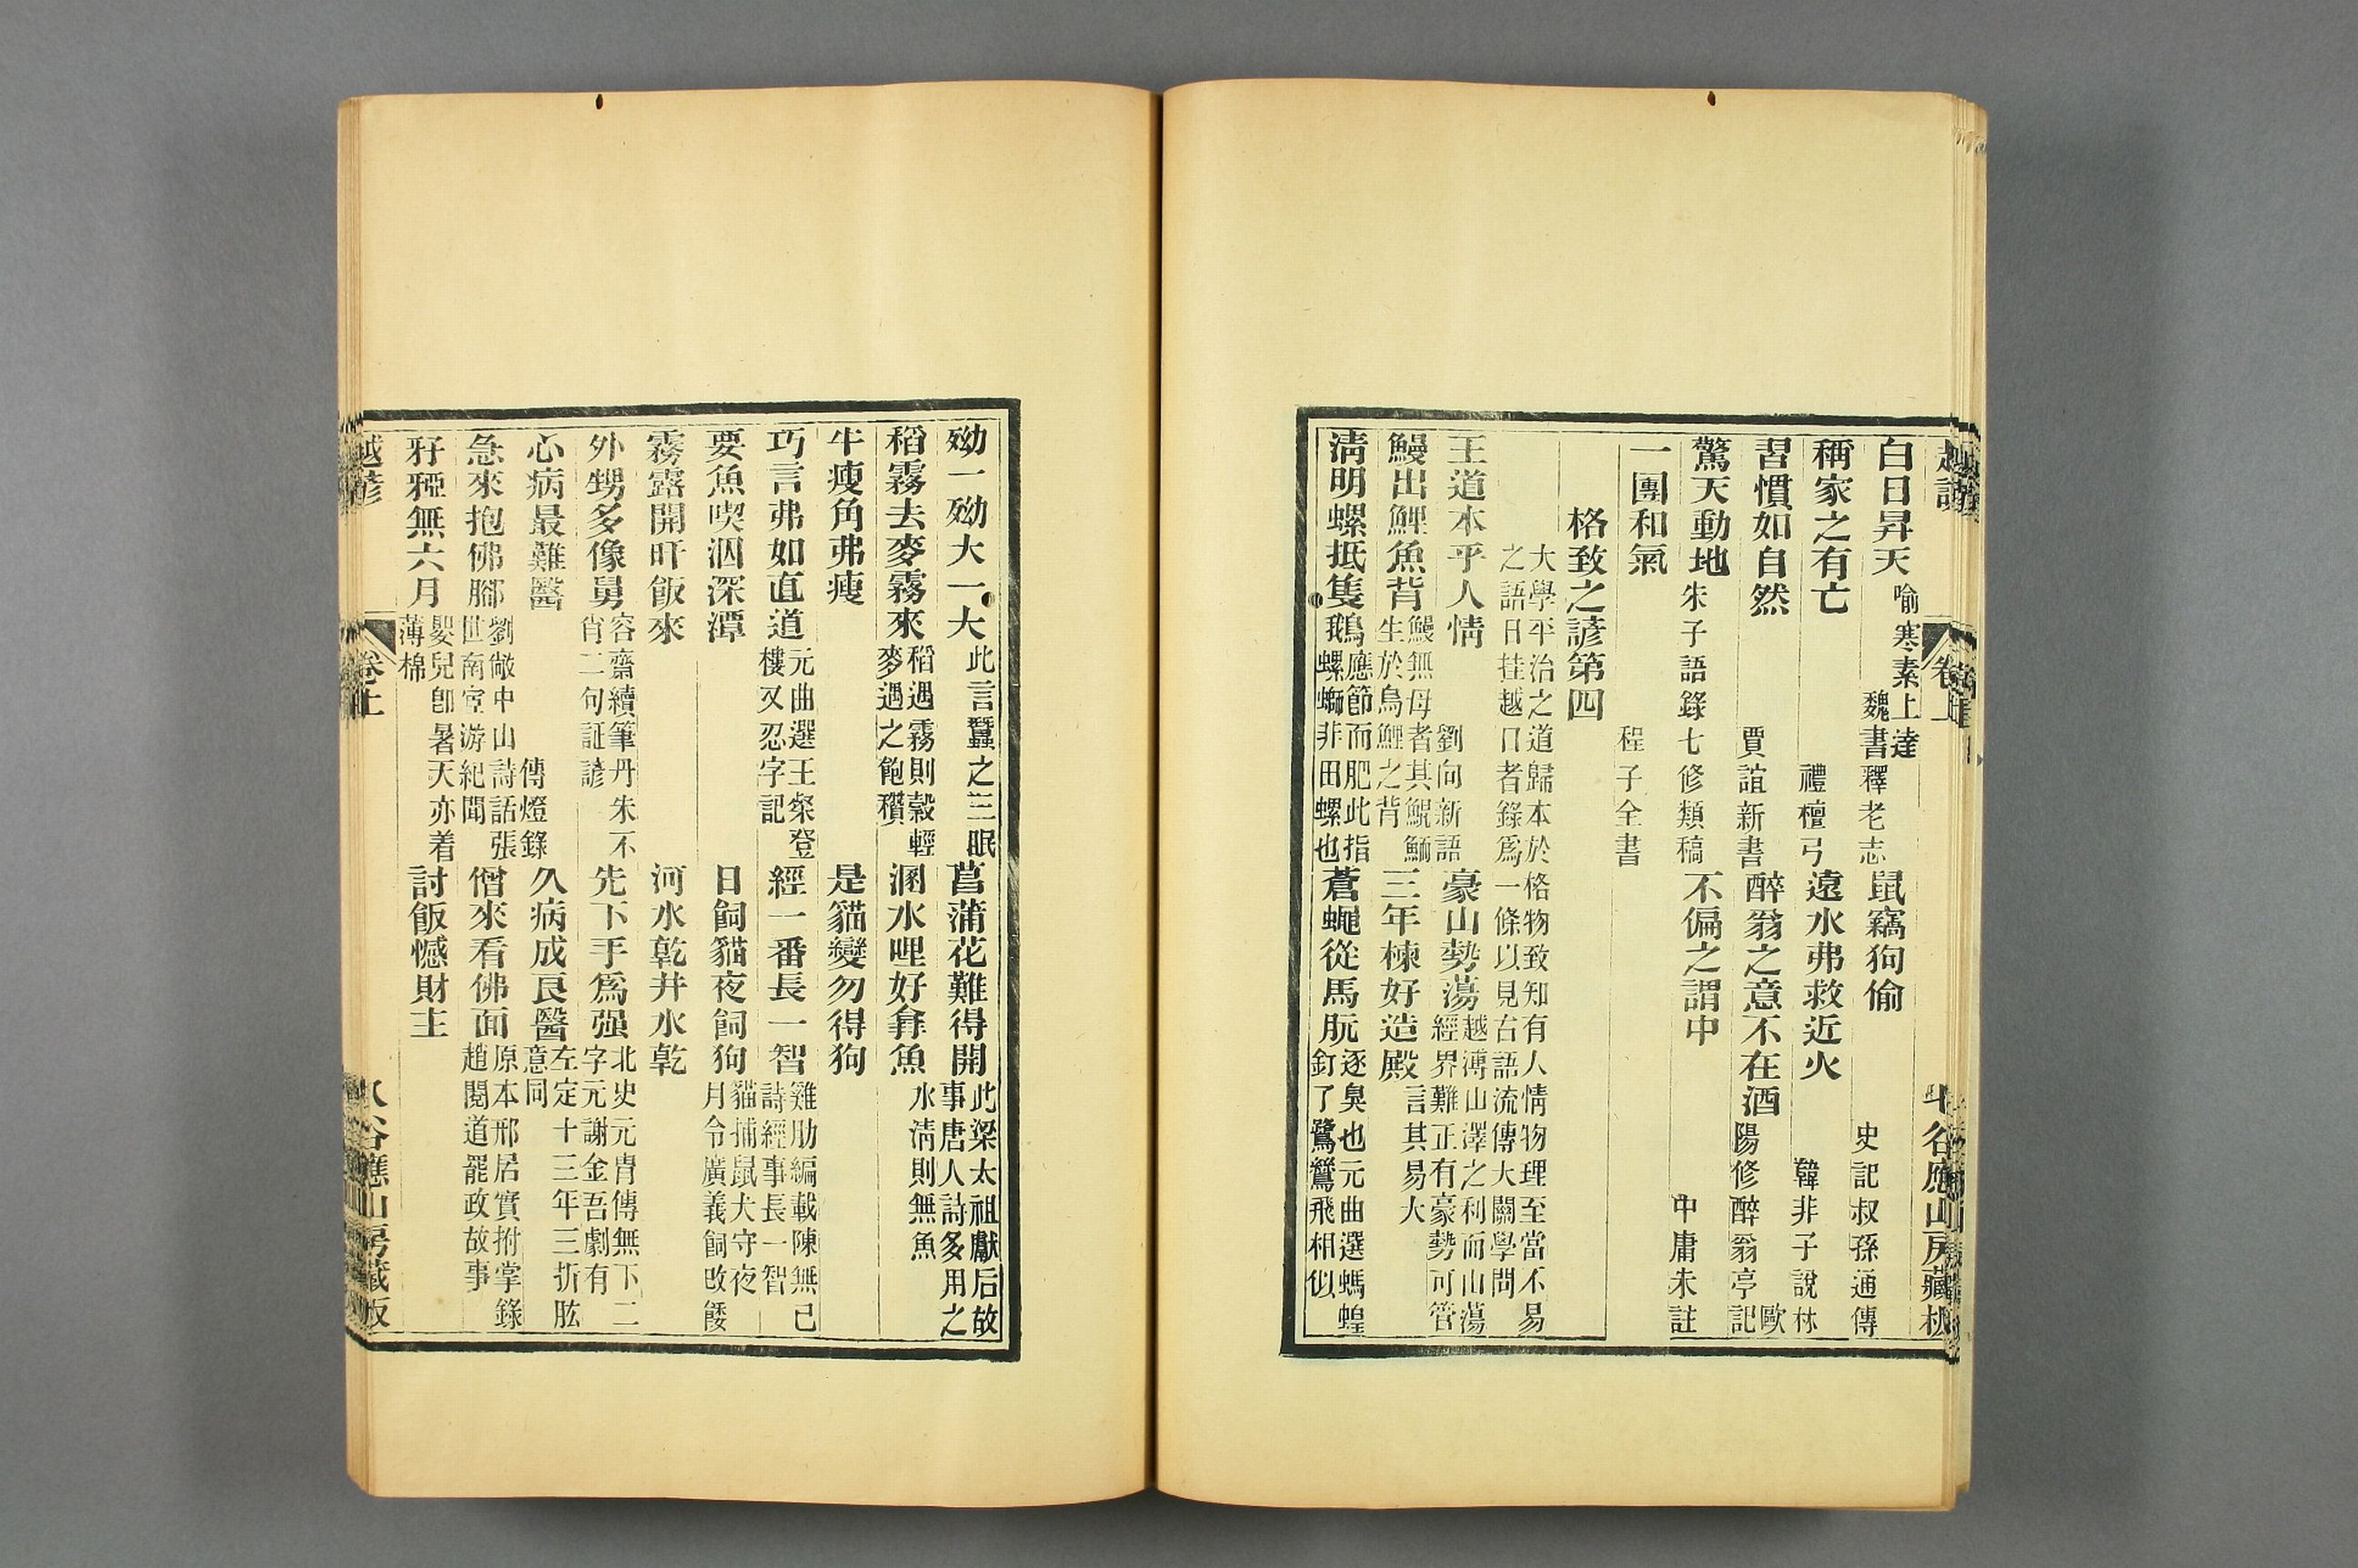 白日昇天 喻寒素上達 魏書釋老志 鼠竊狗偷 史記叔孫通傳
稱家之有亡 禮檀弓 遠水弗救近火 韓非子說林
習慣如自然 賈誼新書 醉翁之意不在酒 歐陽修醉翁亭記
驚天動地 朱子語錄七修類稿 不偏之謂中 中庸朱註
一團和氣 程子全書
格致之諺第四
大學平治之道歸本於格物致知有人情物理至當不易
之語日挂越口者錄爲一條以見古語流傳大關學問
王道本乎人情 劉向新語 豪山勢蕩 越溥山澤之利而山蕩經界難正有豪勢可管
鰻出鯉魚背 鰻無母者其鯢鮞生於烏鯉之背 三年楝好造殿 言其易大
淸明螺抵隻鵝 應節而肥此指螺螄非田螺也 蒼蠅從馬朊 逐臭也元曲選螞蝗釘了鷺鷥飛相似
越諺 卷上 水谷應山房藏板
㓜一㓜大一大 此言蠶之三眠 菖蒲花難得開 此梁太祖獻后故事唐人詩多用之
稻霧去麥霧來 稻遇霧則穀輕麥遇之飽穳 溷水哩好弇魚 水淸則無魚
牛瘦角弗瘦 是貓變勿得狗
巧言弗如直道 元曲選王粲登樓又忍字記 經一番長一智 雞肋編載陳無已詩經事長一智
要魚喫泅深潭 日飼貓夜飼狗 貓捕鼠犬守夜月令廣義飼改餧
霧露開旰飯來 河水乾井水乾
外甥多像舅 容齋續筆丹朱不肖二句証諺 先下手爲强 北史元冑傳無下二字元謝金吾劇有
心病最難醫 傳燈錄 久病成良醫 左定十三年三折肱意同
急來抱佛腳 劉攽中山詩話張世南宦游紀聞 僧來看佛面 原本邢居實拊掌錄趙閱道罷政故事
孖稏無六月 嬰兒卽暑天亦着薄棉 討飯憾財主
越諺 卷上 水谷應山房藏板